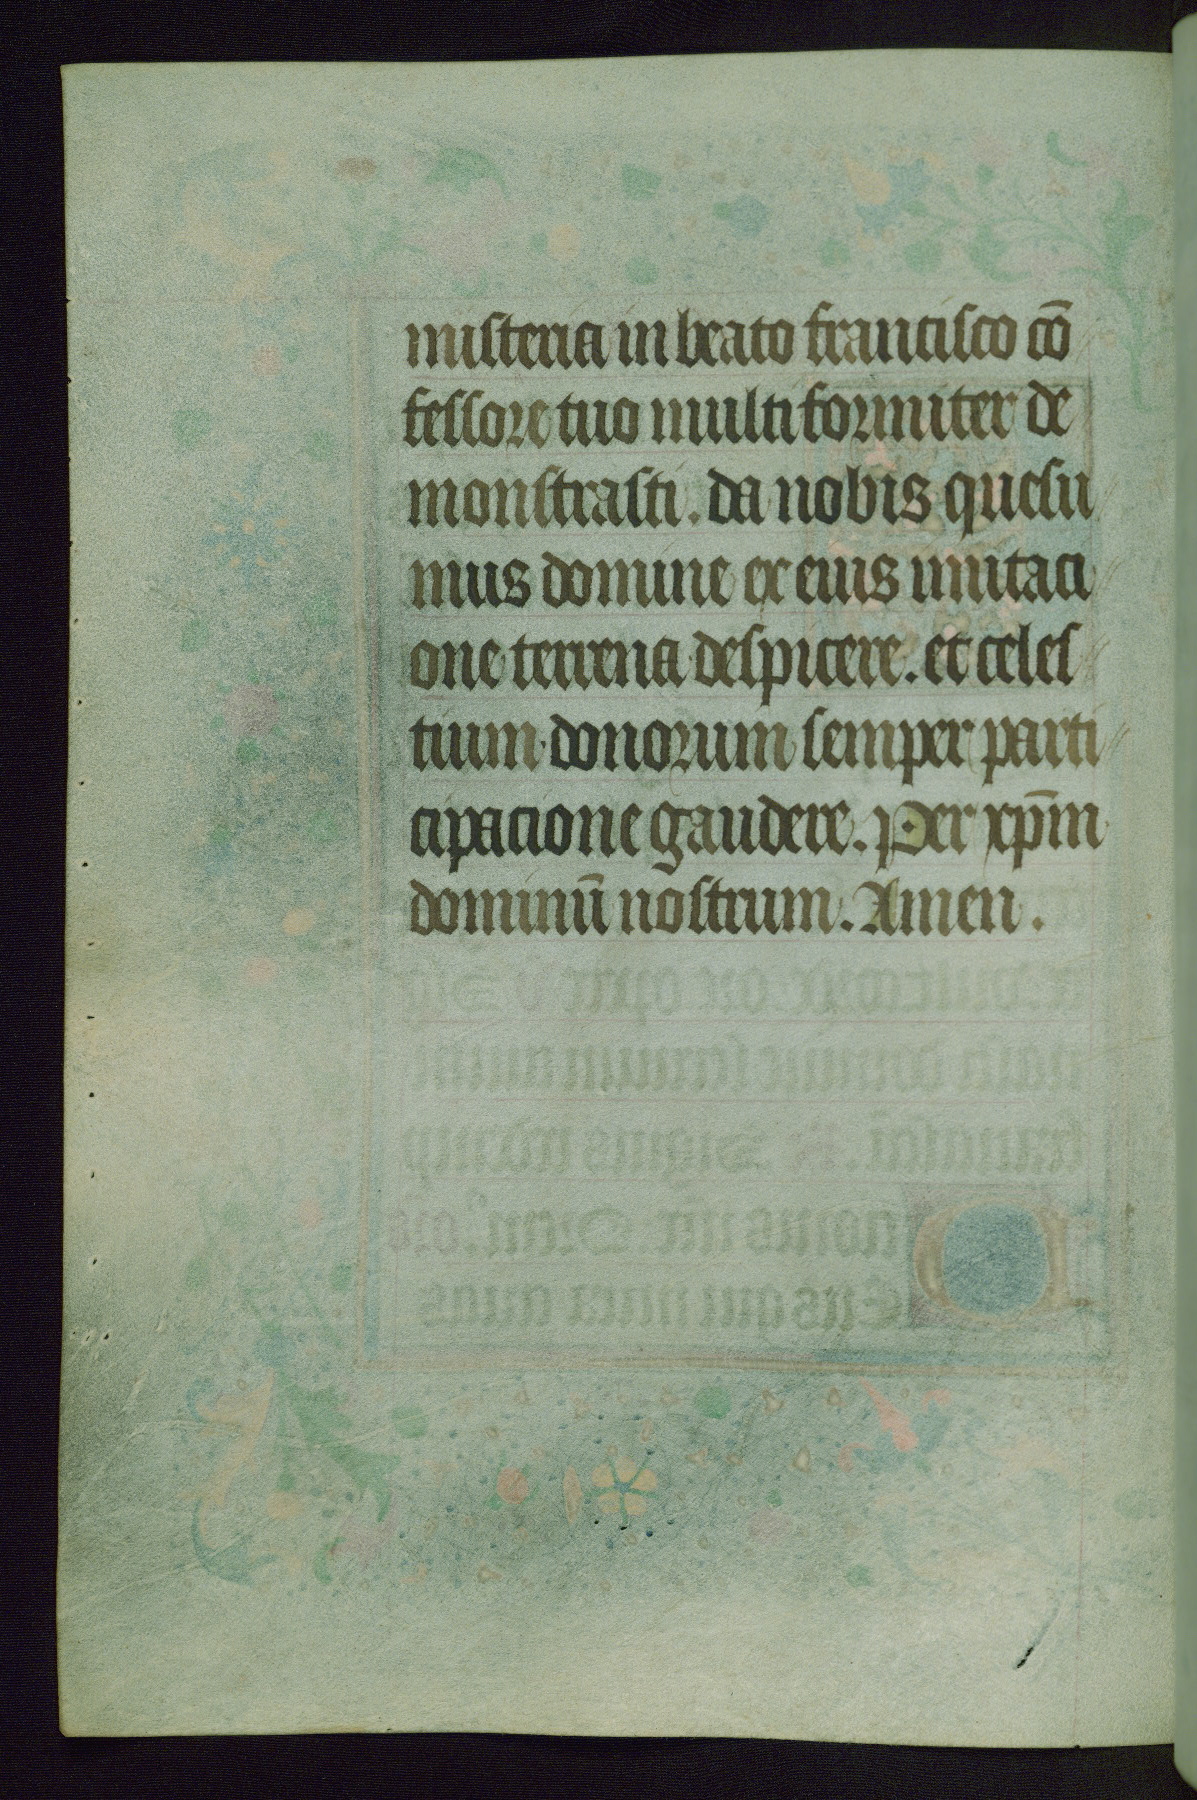 misteria in beato francisco cō
fessore tuo multiformiter de
monstrasti. da nobis quesu
mus domine ex eius imitaci
one terrena despicere. et celes
tium donorum semper parti
cipacione gaudere. Per xp̄m
dominū nostrum. Amen.